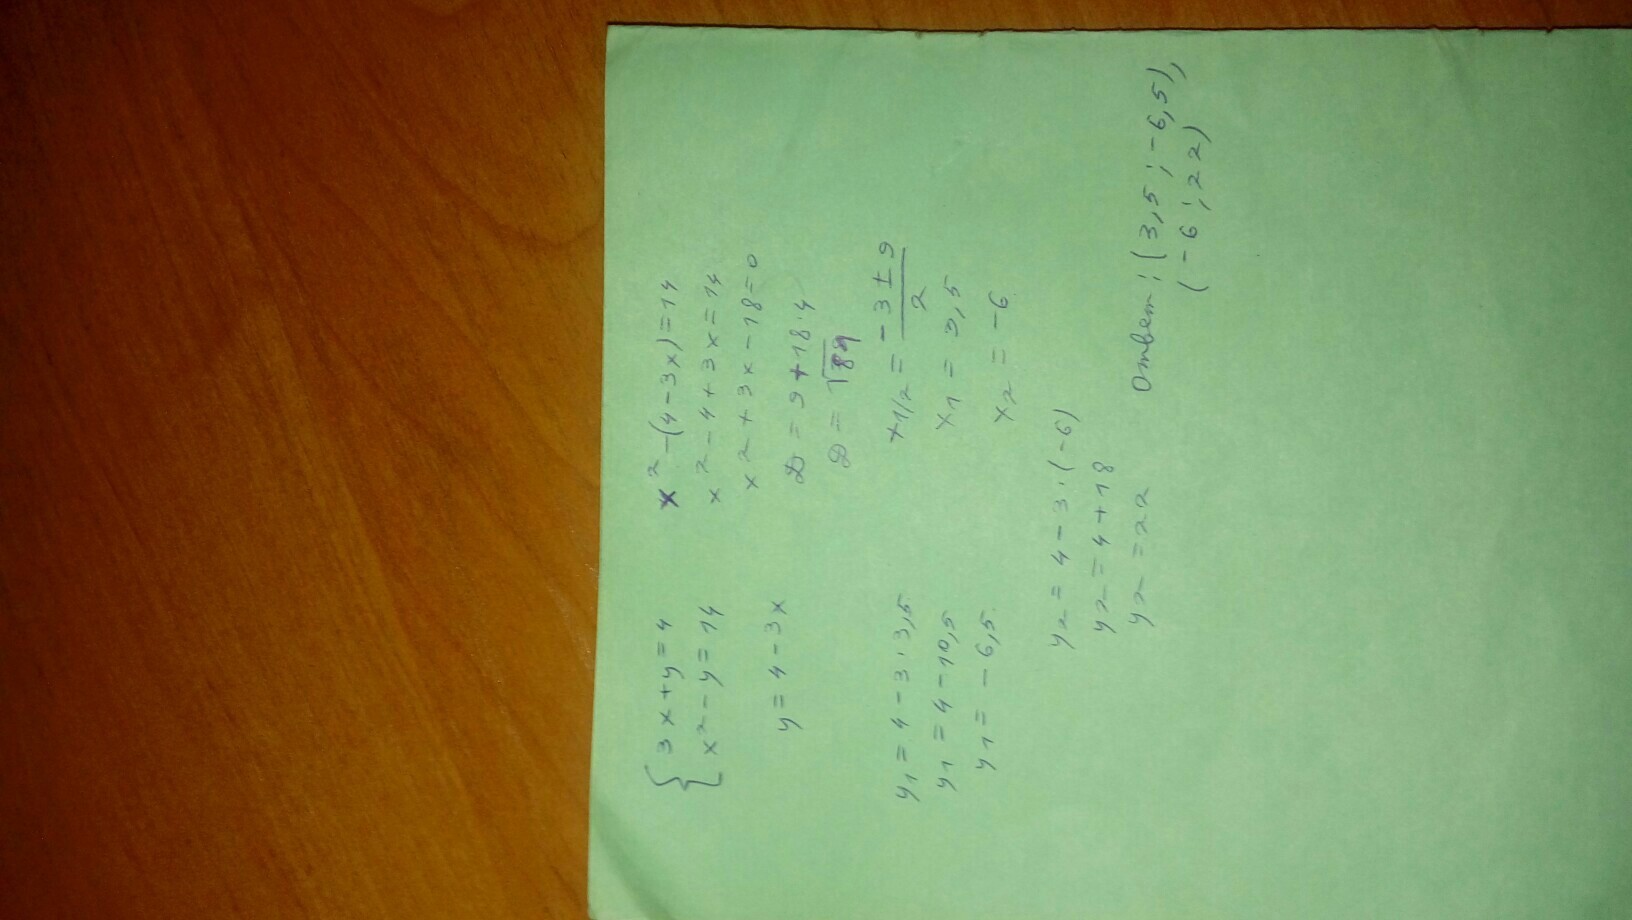 { 3x+y=4
x²-y=14
y=4-3x
x²-(4-3x)=14
x²-4+3x=14
x²+3x-18=0
D=9+18·4
x1/2=-3±9/2
x1=3,5
x2=-6
y1=4-3·3,5
y1=4-10,5
y1=-6,5
y2=4-3·(-6)
y2=4+18
y2=22
Ответ:(3,5;-6,5),
(-6;22)